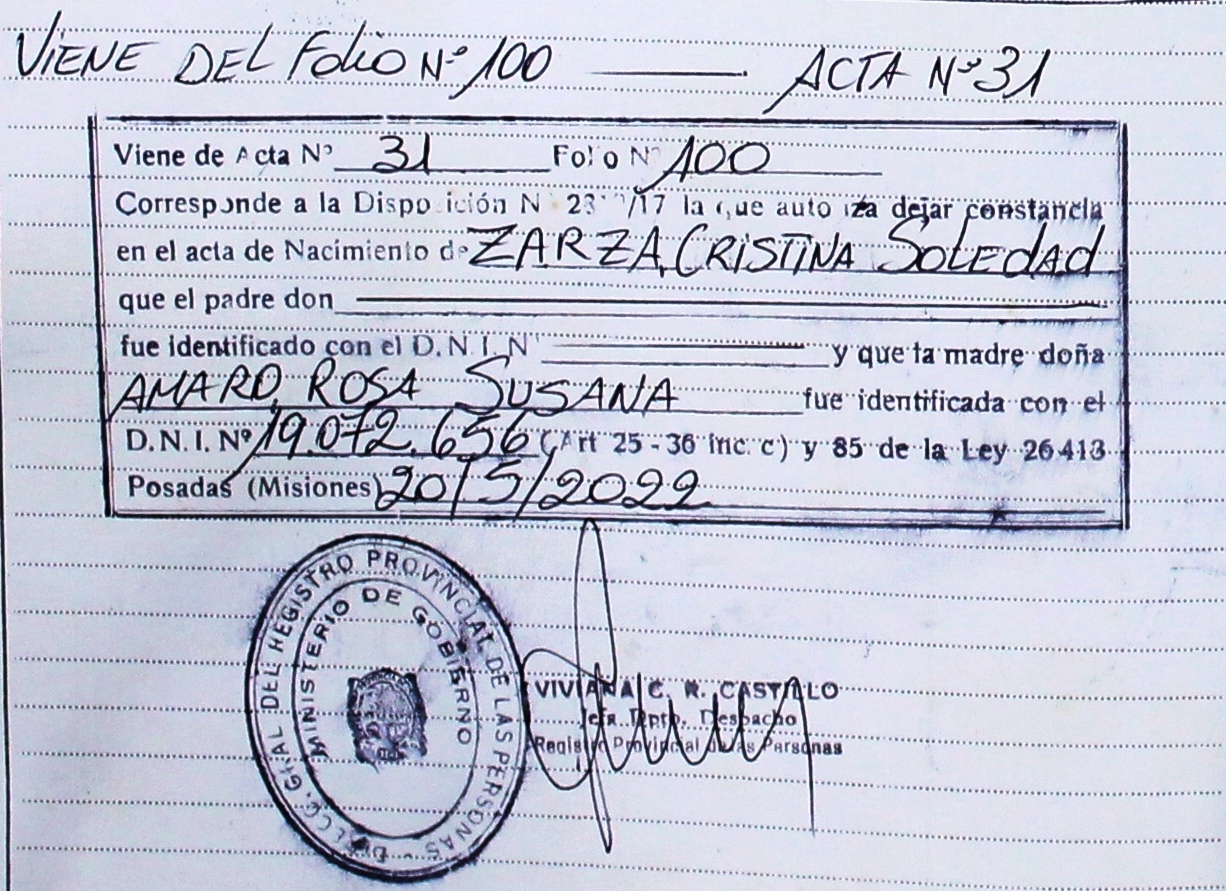 VIENE DEL FOLIO Nº 100 ——— ACTA Nº 31
Viene de Acta Nº 31 Folio Nº 100
Corresponde a la Disposición N /17 la que autoriza dejar constancia
en el acta de Nacimiento de ZARZA, CRISTINA SOLEDAD
que el padre don ———
fue identificado con el D.N.I. Nº ——— y que la madre doña
AMARO, ROSA SUSANA fue identificada con el
D.N.I. Nº 19.072.656 (Art 25 - 36 inc. c) y 85 de la Ley 26.413
Posadas (Misiones) 20/5/2022
DIRECC. GRAL DEL REGISTRO PROVINCIAL DE LAS PERSONAS
MINISTERIO DE GOBIERNO
VIVIANA C. R. CASTILLO
Jefa Dpto. Despacho
Registro Provincial de las Personas